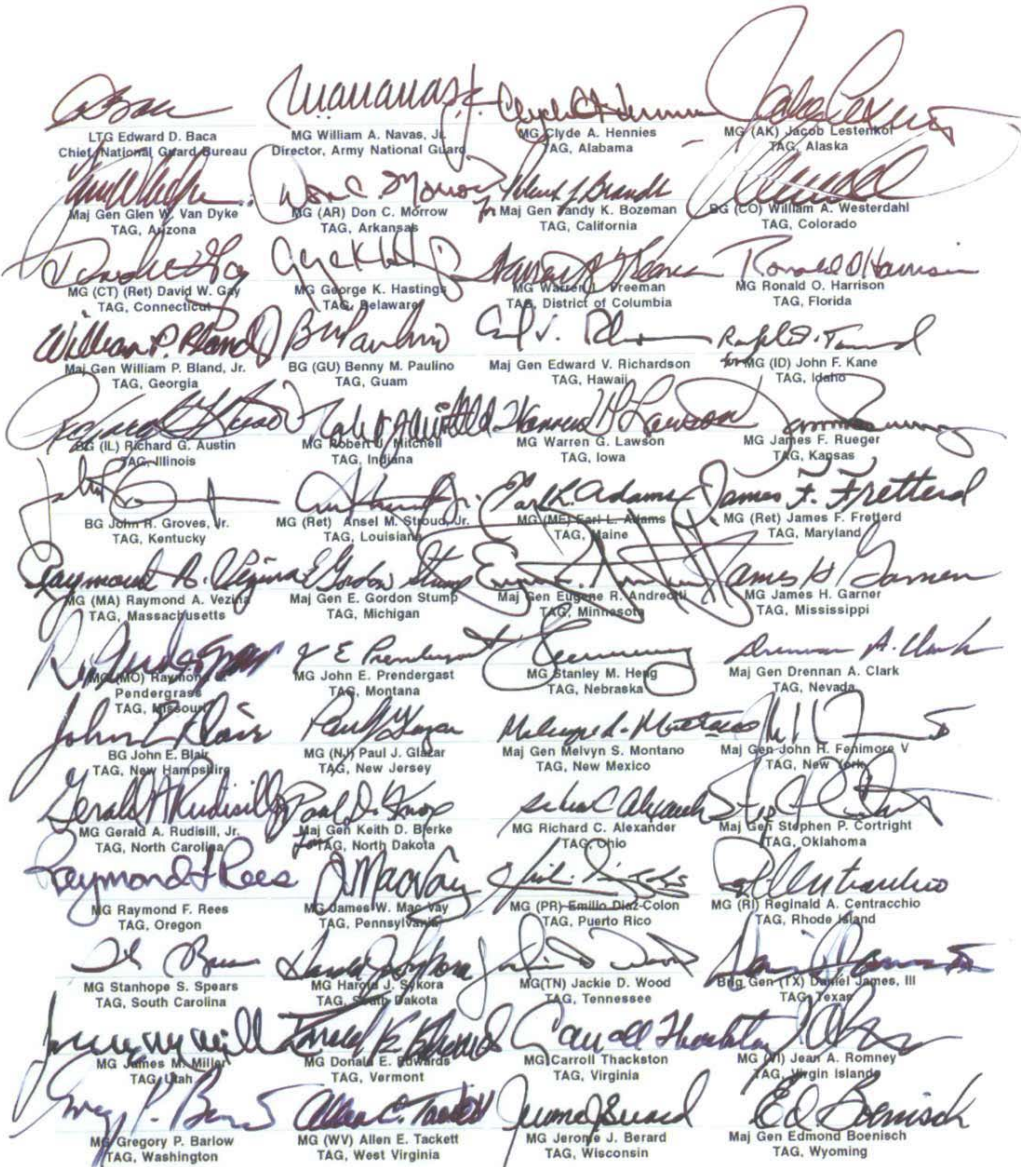 LTG Edward D. Baca
Chief, National Guard Bureau
MG William A. Navas, Jr.
Director, Army National Guard
MG Clyde A. Hennies
TAG, Alabama
MG (AK) Jacob Lestenkof
TAG, Alaska
Maj Gen Glen W. Van Dyke
TAG, Arizona
Don C. Morrow
MG (AR) Don C. Morrow
TAG, Arkansas
for Maj Gen Tandy K. Bozeman
TAG, California
BG (CO) William A. Westerdahl
TAG, Colorado
MG (CT) (Ret) David W. Gay
TAG, Connecticut
MG George K. Hastings
TAG, Delaware
MG Warren Freeman
TAG, District of Columbia
Ronald O Harrison
MG Ronald O. Harrison
TAG, Florida
William P. Bland Jr
Maj Gen William P. Bland, Jr.
TAG, Georgia
BG (GU) Benny M. Paulino
TAG, Guam
Maj Gen Edward V. Richardson
TAG, Hawaii
for MG (ID) John F. Kane
TAG, Idaho
BG (IL) Richard G. Austin
TAG, Illinois
MG Robert J. Mitchell
TAG, Indiana
Warren G Lawson
MG Warren G. Lawson
TAG, Iowa
MG James F. Rueger
TAG, Kansas
BG John R. Groves, Jr.
TAG, Kentucky
MG (Ret) Ansel M. Stroud, Jr.
TAG, Louisiana
Earl L. Adams
MG (ME) Earl L. Adams
TAG, Maine
James F. Fretterd
MG (Ret) James F. Fretterd
TAG, Maryland
Raymond A. Vezina
MG (MA) Raymond A. Vezina
TAG, Massachusetts
E Gordon Stump
Maj Gen E. Gordon Stump
TAG, Michigan
Maj Gen Eugene R. Andreotti
TAG, Minnesota
James H Garner
MG James H. Garner
TAG, Mississippi
MG (MO) Raymond
Pendergrass
TAG, Missouri
J E Prendergast
MG John E. Prendergast
TAG, Montana
MG Stanley M. Heng
TAG, Nebraska
Drennan A. Clark
Maj Gen Drennan A. Clark
TAG, Nevada
John E Blair
BG John E. Blair
TAG, New Hampshire
Paul J Glazar
MG (NJ) Paul J. Glazar
TAG, New Jersey
Melvyn S. Montano
Maj Gen Melvyn S. Montano
TAG, New Mexico
Maj Gen John H. Fenimore V
TAG, New York
Gerald A Rudisill Jr
MG Gerald A. Rudisill, Jr.
TAG, North Carolina
Paul D. Knox
Maj Gen Keith D. Bjerke
for TAG, North Dakota
Richard C Alexander
MG Richard C. Alexander
TAG, Ohio
Maj Gen Stephen P. Cortright
TAG, Oklahoma
Raymond F Rees
MG Raymond F. Rees
TAG, Oregon
J MacVay
MG James W. Mac Vay
TAG, Pennsylvania
MG (PR) Emilio Diaz-Colon
TAG, Puerto Rico
MG (RI) Reginald A. Centracchio
TAG, Rhode Island
MG Stanhope S. Spears
TAG, South Carolina
Harold J Sykora
MG Harold J. Sykora
TAG, South Dakota
MG(TN) Jackie D. Wood
TAG, Tennessee
Brig Gen (TX) Daniel James, III
TAG, Texas
MG James M. Miller
TAG, Utah
MG Donald E. Edwards
TAG, Vermont
Carroll Thackston
MG Carroll Thackston
TAG, Virginia
MG (VI) Jean A. Romney
TAG, Virgin Islands
MG Gregory P. Barlow
TAG, Washington
Allen E. Tackett
MG (WV) Allen E. Tackett
TAG, West Virginia
Jerome J Berard
MG Jerome J. Berard
TAG, Wisconsin
Ed Boenisch
Maj Gen Edmond Boenisch
TAG, Wyoming